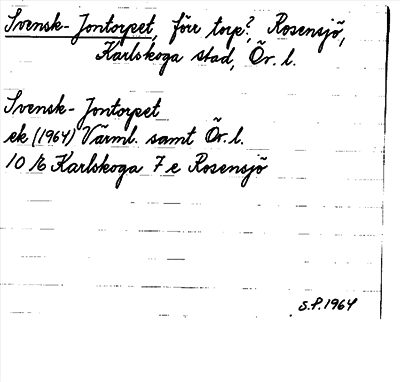 Svensk-Jontorpet, förr torp?, Rosensjö,
Karlskoga stad, Ör. l.
Svensk-Jontorpet
ek (1964) Värml. samt Ör. l.
10 16 Karlskoga 7 e Rosensjö
S.P. 1964